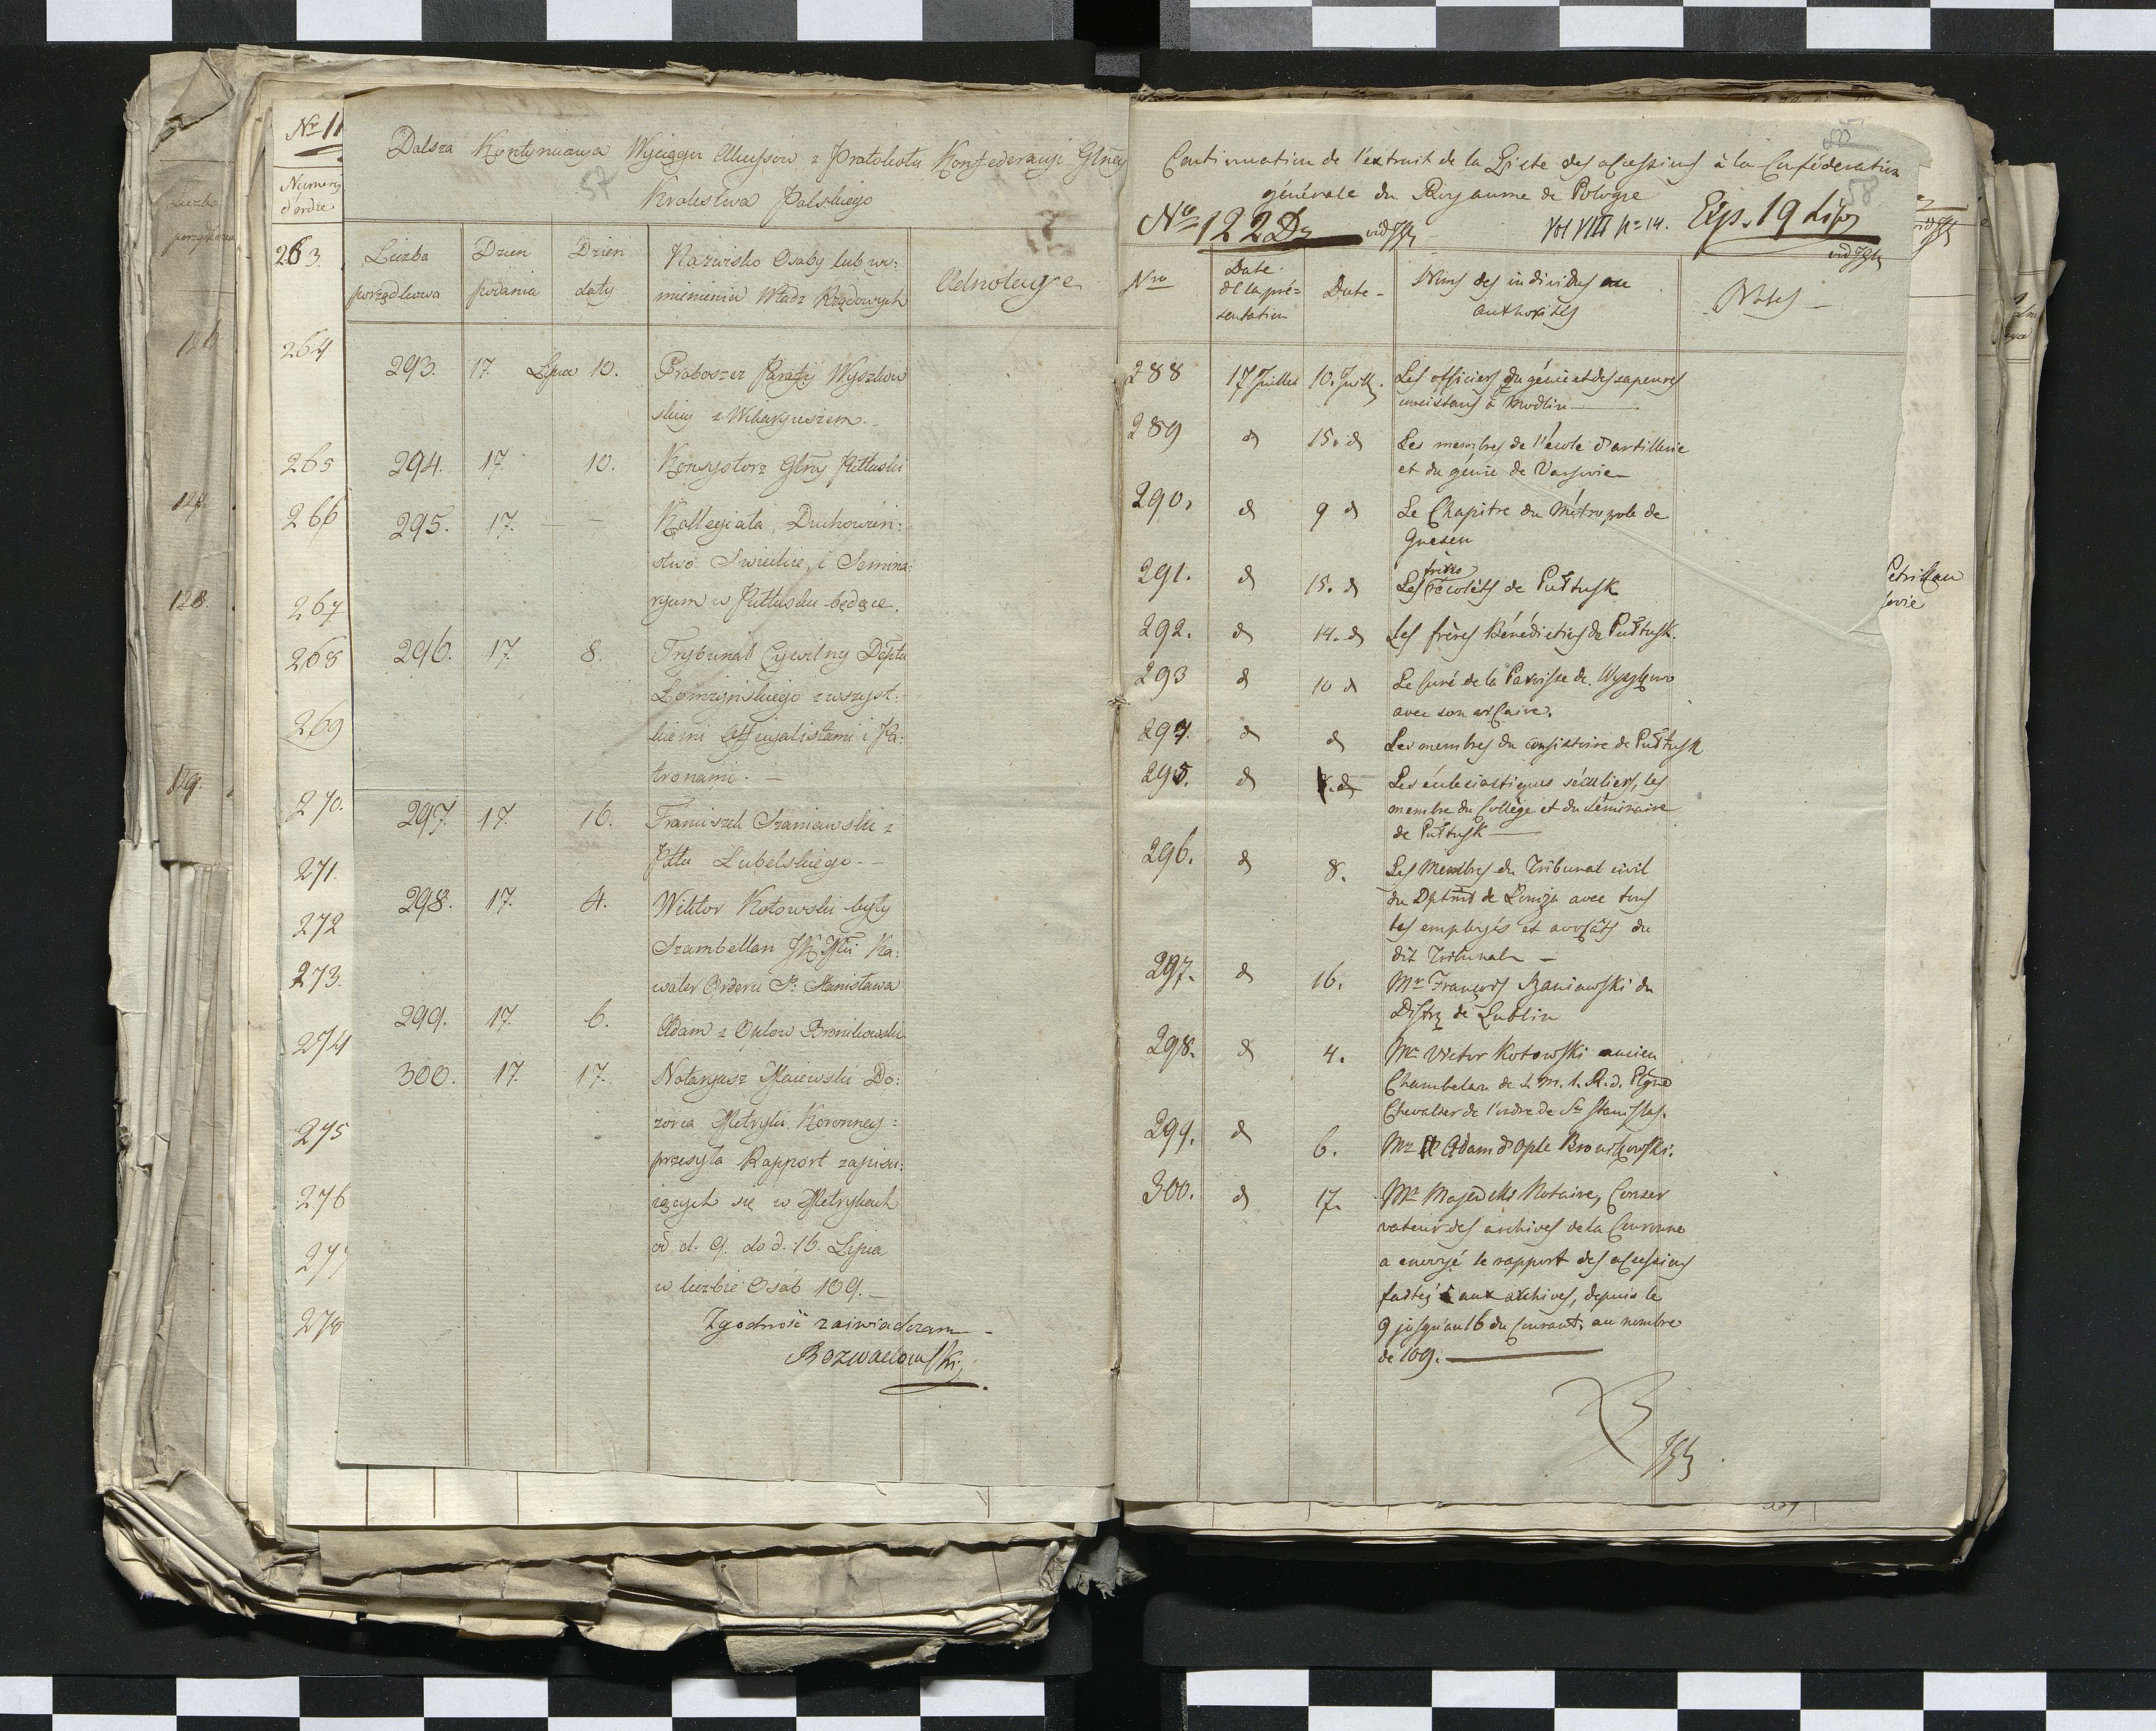 Nr 11
Numery
d'ordre
263.
264
265
266
267
268
269
270.
271.
272
273.
274
275
276
277
278
Liczba
porządkowa
126.
127.
128.
129.
Dalsza Kontynuacya Wyciągu Akcessow z Protokołu Konfederacyi Glney
57
Krolestwa Polskiego
Liczba
porządkowa
Dzien
podania
Dzien
daty
Nazwisko Osoby lub wy:
mienienie Władz Rządowych
Adnotacye
293. 17. Lipca 10. Proboszcz Parafij Wyszkow
skiey z Wikaryuszem.
294. 17. 10. Konsystorz Glny Pułtuski
295. 17. — — Kollegiata, Duchowień:
stwo Swieckie, i Semina:
ryum w Pułtusku będące.
296. 17. 8. Trybunał Cywilny Deptu
Łomżyńskiego z wszyst:
kiemi Officyalistami i Pa:
tronami. —
297. 17. 16. Franciszek Szaniawski z
Pttu Lubelskiego. —
298. 17. 4. Wiktor Kotowski były
Szambellan JK Mci Ka:
waler Orderu S. Stanisława
299. 17. 6. Adam z Opłow Bronikowski
300. 17. 17. Notaryusz Majewski Do:
zorca Metryki Koronney:
przesyła Rapport zapisu:
iących się w Metrykach
od d. 9. do d. 16. Lipca
w liczbie Osób 109. —
Zgodność zaświadczam —
Rozwadowski
Continuation de l'extrait de la Liste des accessions à la Confédération
58
générale du Royaume de Pologne
No 122 Dz vid Vol VIII No 14. Exp. 19 Lipca
Nro
Date
de la pré=
sentation
Date —
Noms des individus ou
authorités
Notes —
288 17 Juillet 10. Juill. Les officiers du génie et des sapeurs
existans à Modlin —
289 d 15. d Les membres de l'école d'artillerie
et du génie de Varsovie —
290. d 9 d Le Chapitre du Métropole de
Gnesen
frères
291. d 15. d Les récolets de Pułtusk
292. d 14. d Les frères Bénédictins de Pułtusk.
293 d 10 d Le Curé de la Paroisse de Wyszkowo
avec son vicaire.
294. d d Les membres du consistoire de Pułtusk
295. d d Les écclesiastiques séculiers, les
membre du Collège et du Séminaire
de Pułtusk —
296. d 8. Les Membres du Tribunal civil
du Dptmt de Łomża avec tous
les employés et avocats du
dit Tribunal —
297. d 16. Mr François Szaniawski du
Distr de Lublin
298. d 4. Mr Victor Kotowski ancien
Chambelan de S. M. l. R. d. Plgne
Chevalier de l'ordre de St Stanislas.
299. d 6. Mr Adam d'Ople Bronikowski.
300. d 17. Mr Majewski Notaire, Conser
vateur des archives de la Couronne
a envoyé le rapport des accessions
faites aux archives, depuis le
9 jusqu'au 16 du Courant, au nombre
de 109. —
Petrikau